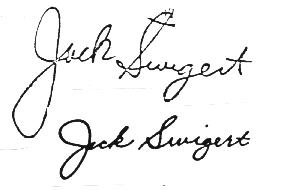 Jack Swigert
Jack Swigert